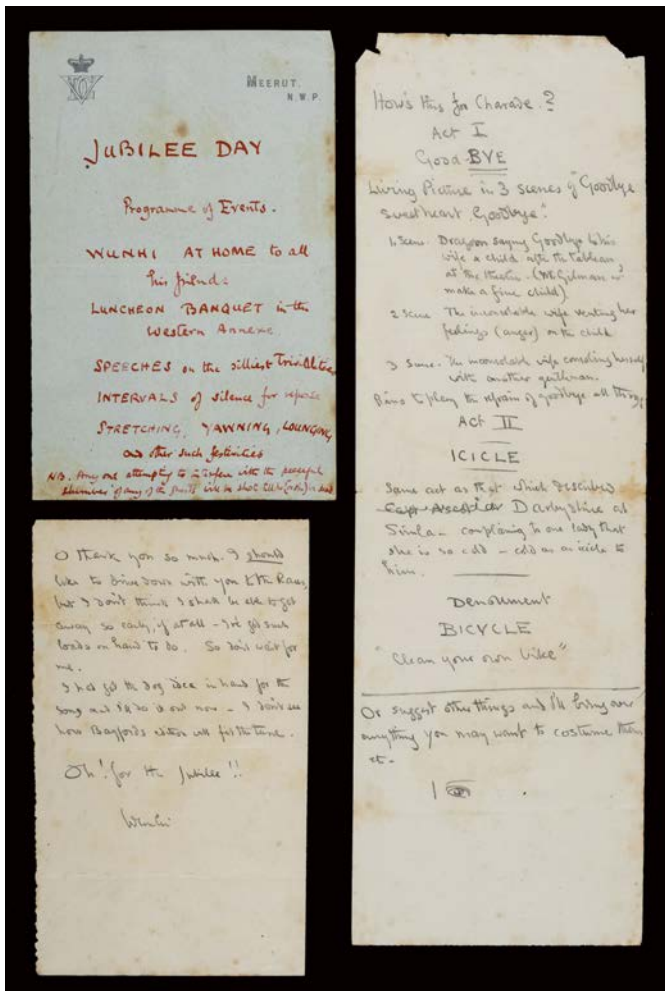 MEERUT.
N.W.P.
JUBILEE DAY
Programme of Events.
WUNHI AT HOME to all
his friends
LUNCHEON BANQUET in the
Western Annexe
SPEECHES on the silliest Trivialities
INTERVALS of silence for repose
STRETCHING, YAWNING, LOUNGING,
and other such festivities
NB. Any one attempting to interfere with the peaceful
slumbers of any of the guests will be shot
O thank you so much. I should
like to drive down with you to the Races,
but I don't think I shall be able to get
away so early, if at all - I've got such
loads on hand to do. So don't wait for
me.
I had got the dog idea in hand for the
song and I'll do it out now - I don't see
how Bayfords edition will fit the tune.
Oh! for the Jubilee!!
Wunhi
How's this for Charade.?
Act I
Good-BYE
Living Picture in 3 scenes of "Goodbye
sweetheart Goodbye".
1 Scene. Dragoon saying Goodbye to his
wife & child after the tableau
at the theatre - (McGilman
make a fine child)
2 Scene The inconsolable wife venting her
feelings (anger) on the child
3 Scene. The inconsolable wife consoling herself
with another gentleman.
to play the refrain of goodbye all the
Act II
ICICLE
Same act as that which described
Darbyshire at
Simla - complaining to one lady that
she is so cold - cold as an icicle to
him.
Denoument
BICYCLE
"Clean your own bike"
Or suggest other things and I'll bring over
anything you may want to costume them
et-
I